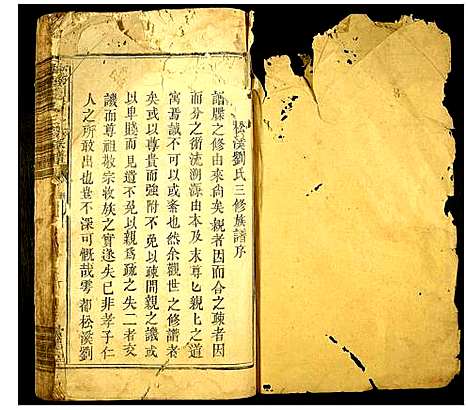 松溪劉氏三修族譜序
譜牒之修由來尚矣親者因而合之疎者因
而分之衍流溯源由本及末尊祖親上之道
寓焉誠不可以或紊也然余觀世之修譜者
矣或以尊貴而強附不免以疎開親之譏或
以卑賤而見遺不免以親爲疏之失二者交
譏而尊祖敬宗收族之實遂失已非孝子仁
人之所敢出也豈不深可慨哉雩都松溪劉